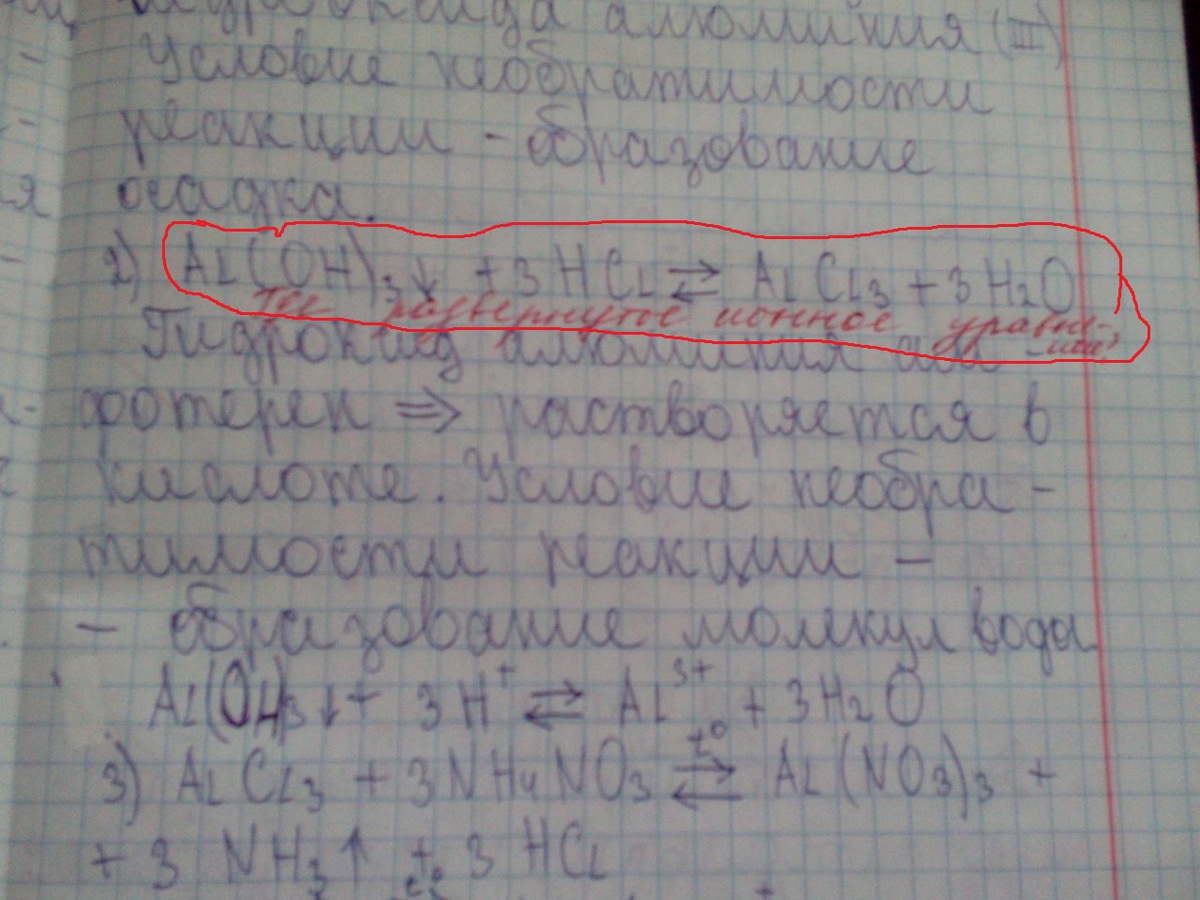 гидроксида алюминия (III)
- Условие необратимости
реакции - образование
осадка.
2) Al(OH)3↓ + 3HCl ⇄ AlCl3 + 3H2O
где развернутое ионное уравне-
-ние?
Гидроксид алюминия ам-
фотерен => растворяется в
кислоте. Условие необра-
тимости реакции -
- образование молекул воды
Al(OH)3↓ + 3H+ ⇄ Al3+ + 3H2O
3) AlCl3 + 3NH4NO3 ⇄ t° Al(NO3)3 +
+ 3 NH3↑ + 3 HCl